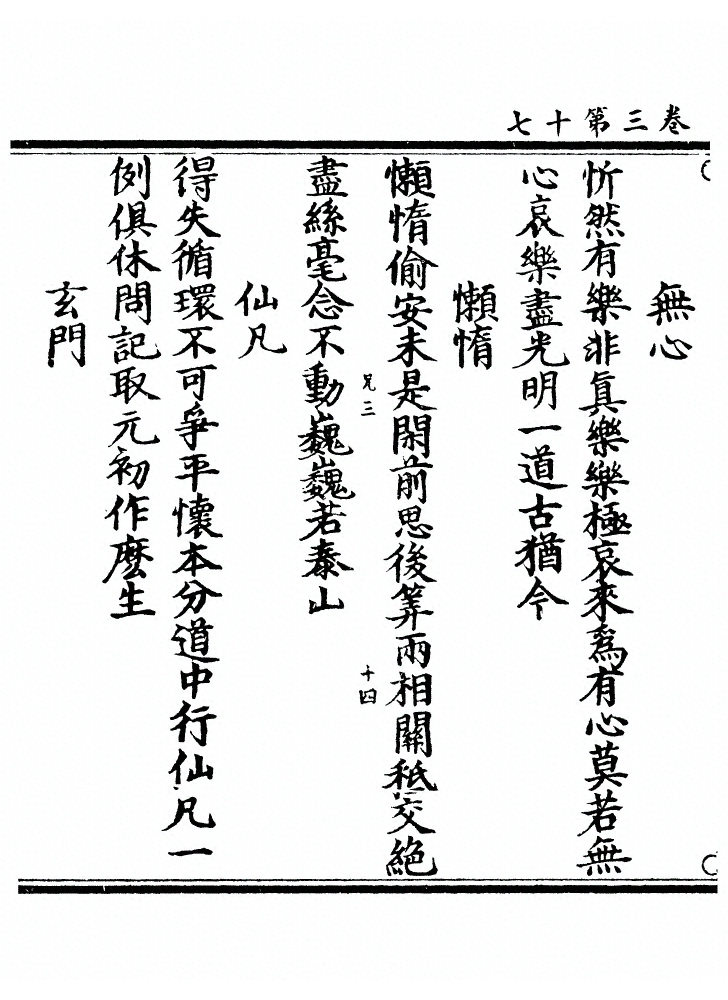 卷三第十七
無心
忻然有樂非真樂樂極哀來爲有心莫若無
心哀樂盡光明一道古猶今
懶惰
懶惰偷安未是閑前思後筭兩相關秖交絕
兄三
十四
盡絲毫念不動巍巍若泰山
仙凡
得失循環不可爭平懷本分道中行仙凡一
例俱休問記取元初作麽生
玄門